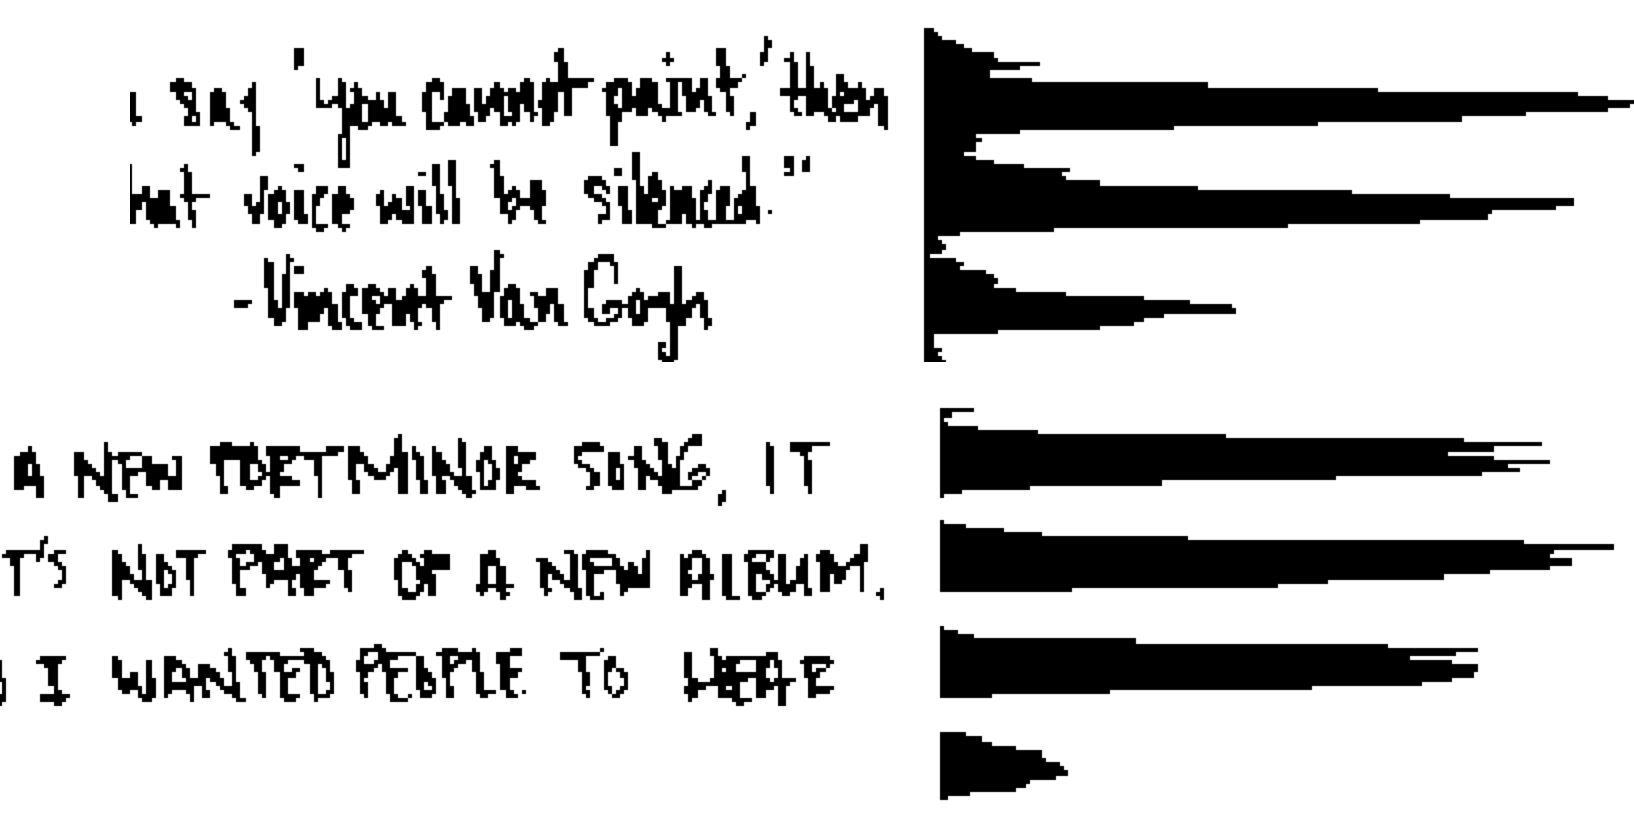 say 'you cannot paint,' then
hat voice will be silenced."
-Vincent Van Gogh
A NEW FORT MINOR SONG, IT
T'S NOT PART OF A NEW ALBUM.
I WANTED PEOPLE TO HEAR